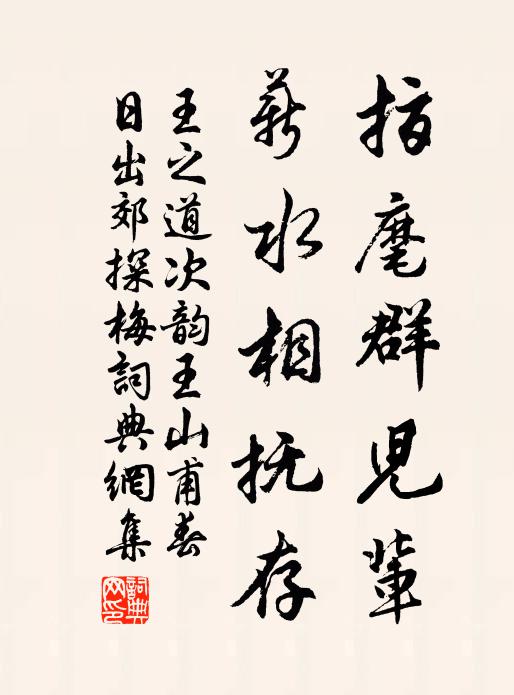 指麾群児輩
薪水相抚存
王之道次韵王山甫春
日出郊探梅詞典網集
詞典網印